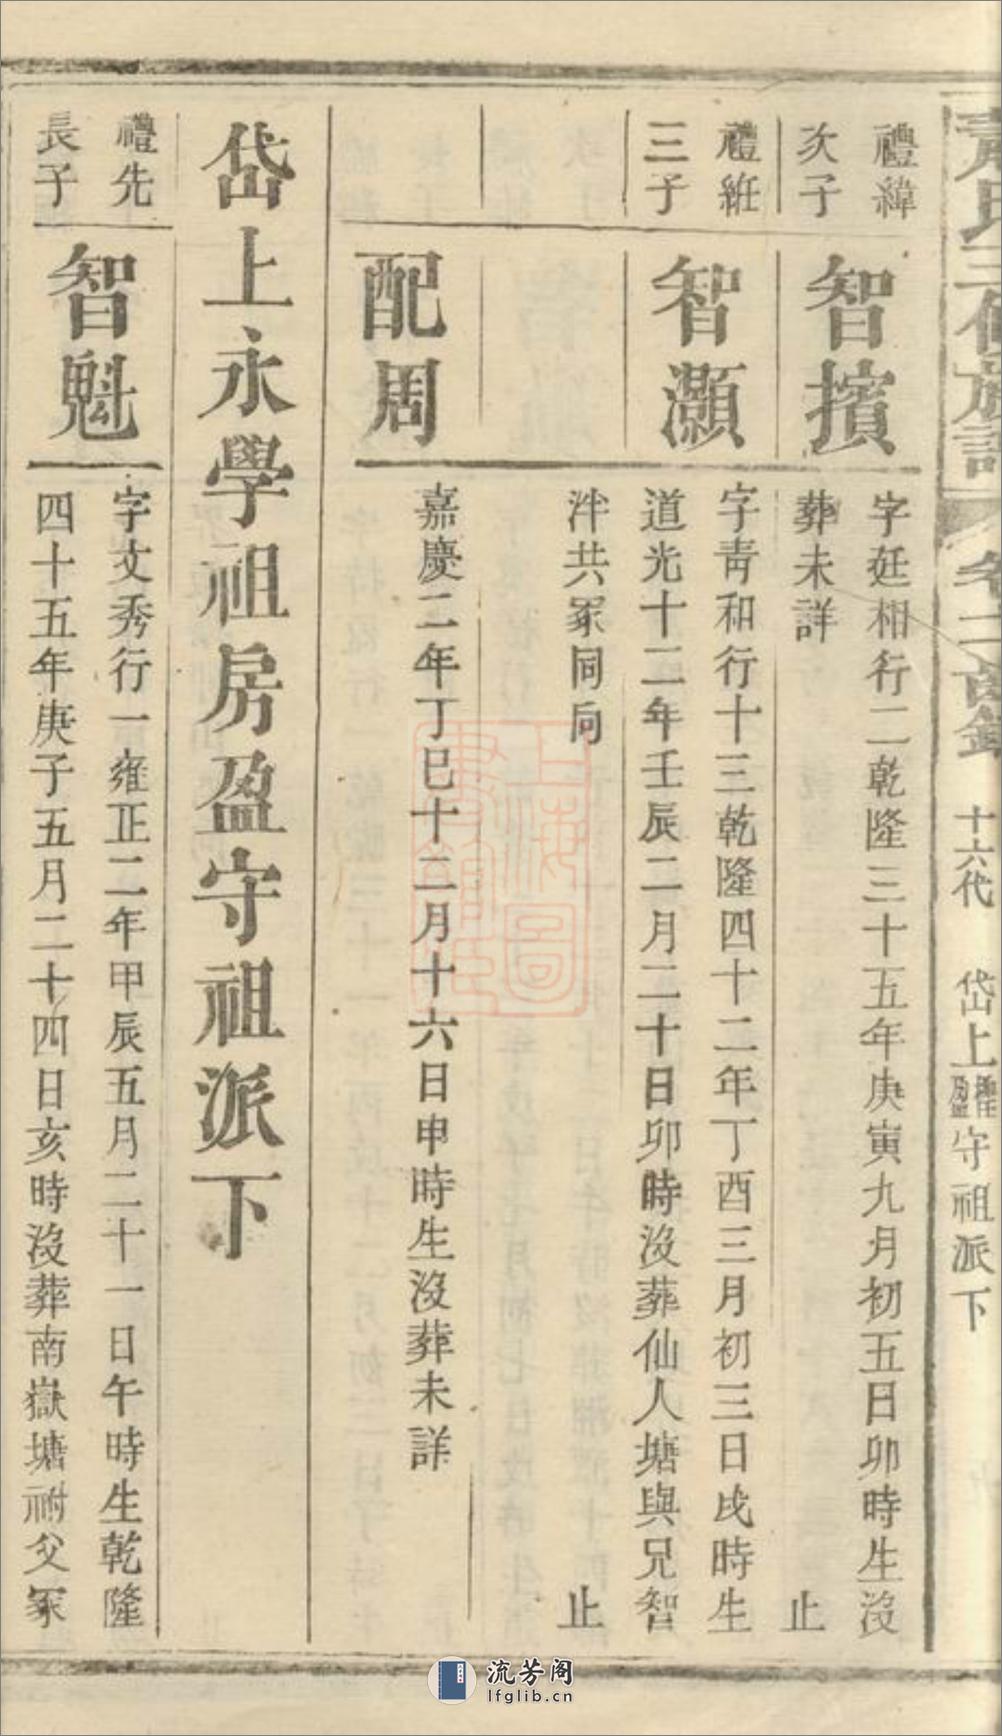 氏三修族譜
卷二
十六代
岱上
守祖派下
禮緯
次子
智擯
字廷相行二乾隆三十五年庚寅九月初五日卯時生沒
葬未詳
止
禮
三子
智灝
字靑和行十三乾隆四十二年丁酉三月初三日戌時生
道光十二年壬辰二月二十日卯時沒葬仙人塘與兄智
泮共冢同向
止
配周
嘉慶二年丁巳十二月十六日申時生沒葬未詳
岱上永學祖房盈守祖派下
禮先
長子
智魁
字文秀行一雍正二年甲辰五月二十一日午時生乾隆
四十五年庚子五月二十四日亥時沒葬南嶽塘祔父冢
上海圖書館藏
流芳阁
lfglib.cn